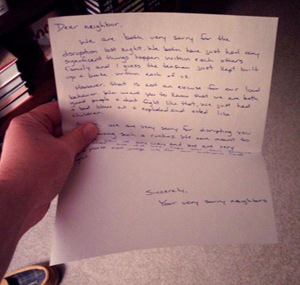 Dear neighbor,
We are both very sorry for the
disruption last night. We both have just had very
significant things happen within each others
family and I guess the tension just kept built
up & broke within each of us.
However, that is not an excuse for our loud
behavior. We want you to know that we are both
good people & dont fight like that, we just had
a bad blow out & exploded and acted like
children.
we are very sorry for disrupting you
such a ruckus. We never meant to
and we are very
Sincerely,
Your very sorry neighbors